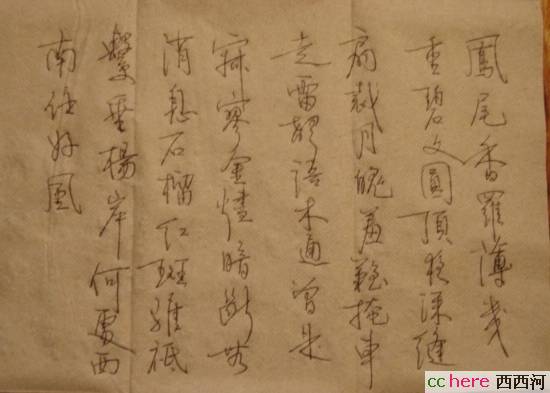 鳳尾香羅薄幾
重碧文圓頂夜深縫
扇裁月魄羞難掩車
走雷聲語未通曾是
寂寥金燼暗斷無
消息石榴紅斑騅祗
繫垂楊岸何處西
南任好風
cchere 西西河